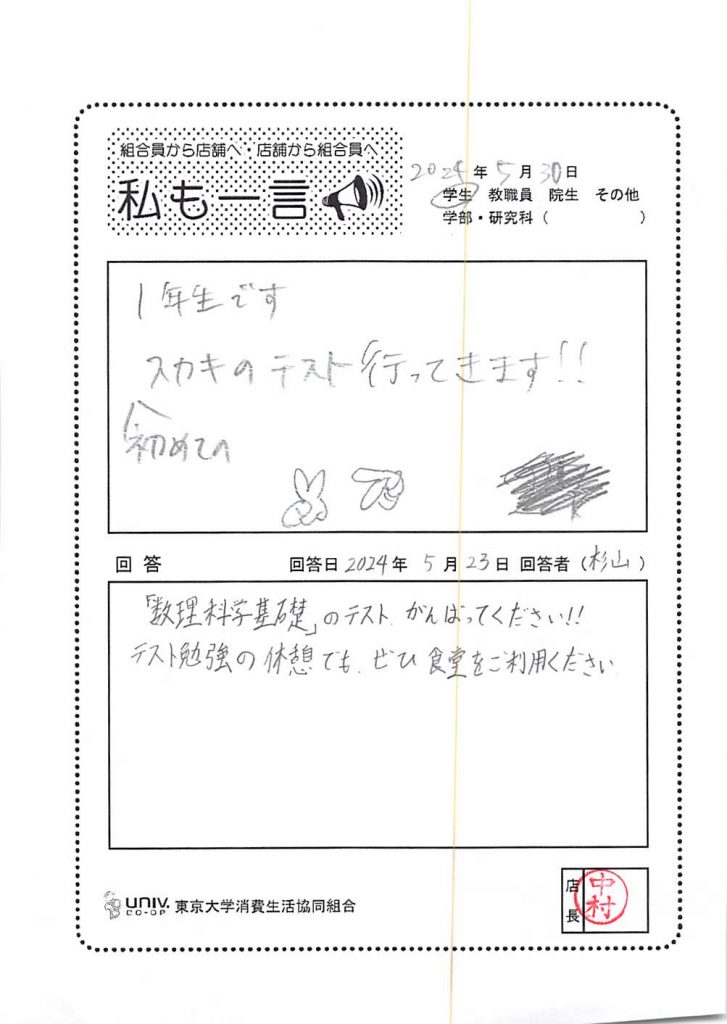 組合員から店舗へ・店舗から組合員へ
私も一言
2024年5月30日
学生 教職員 院生 その他
学部・研究科（　　　　　　）
1年生です
スカキのテスト行ってきます!!
初めての
回答 回答日 2024年 5月23日 回答者（杉山）
「数理科学基礎」のテスト、がんばってください!!
テスト勉強の休憩でも、ぜひ食堂をご利用ください
UNIV. CO-OP 東京大学消費生活協同組合
店長 中村